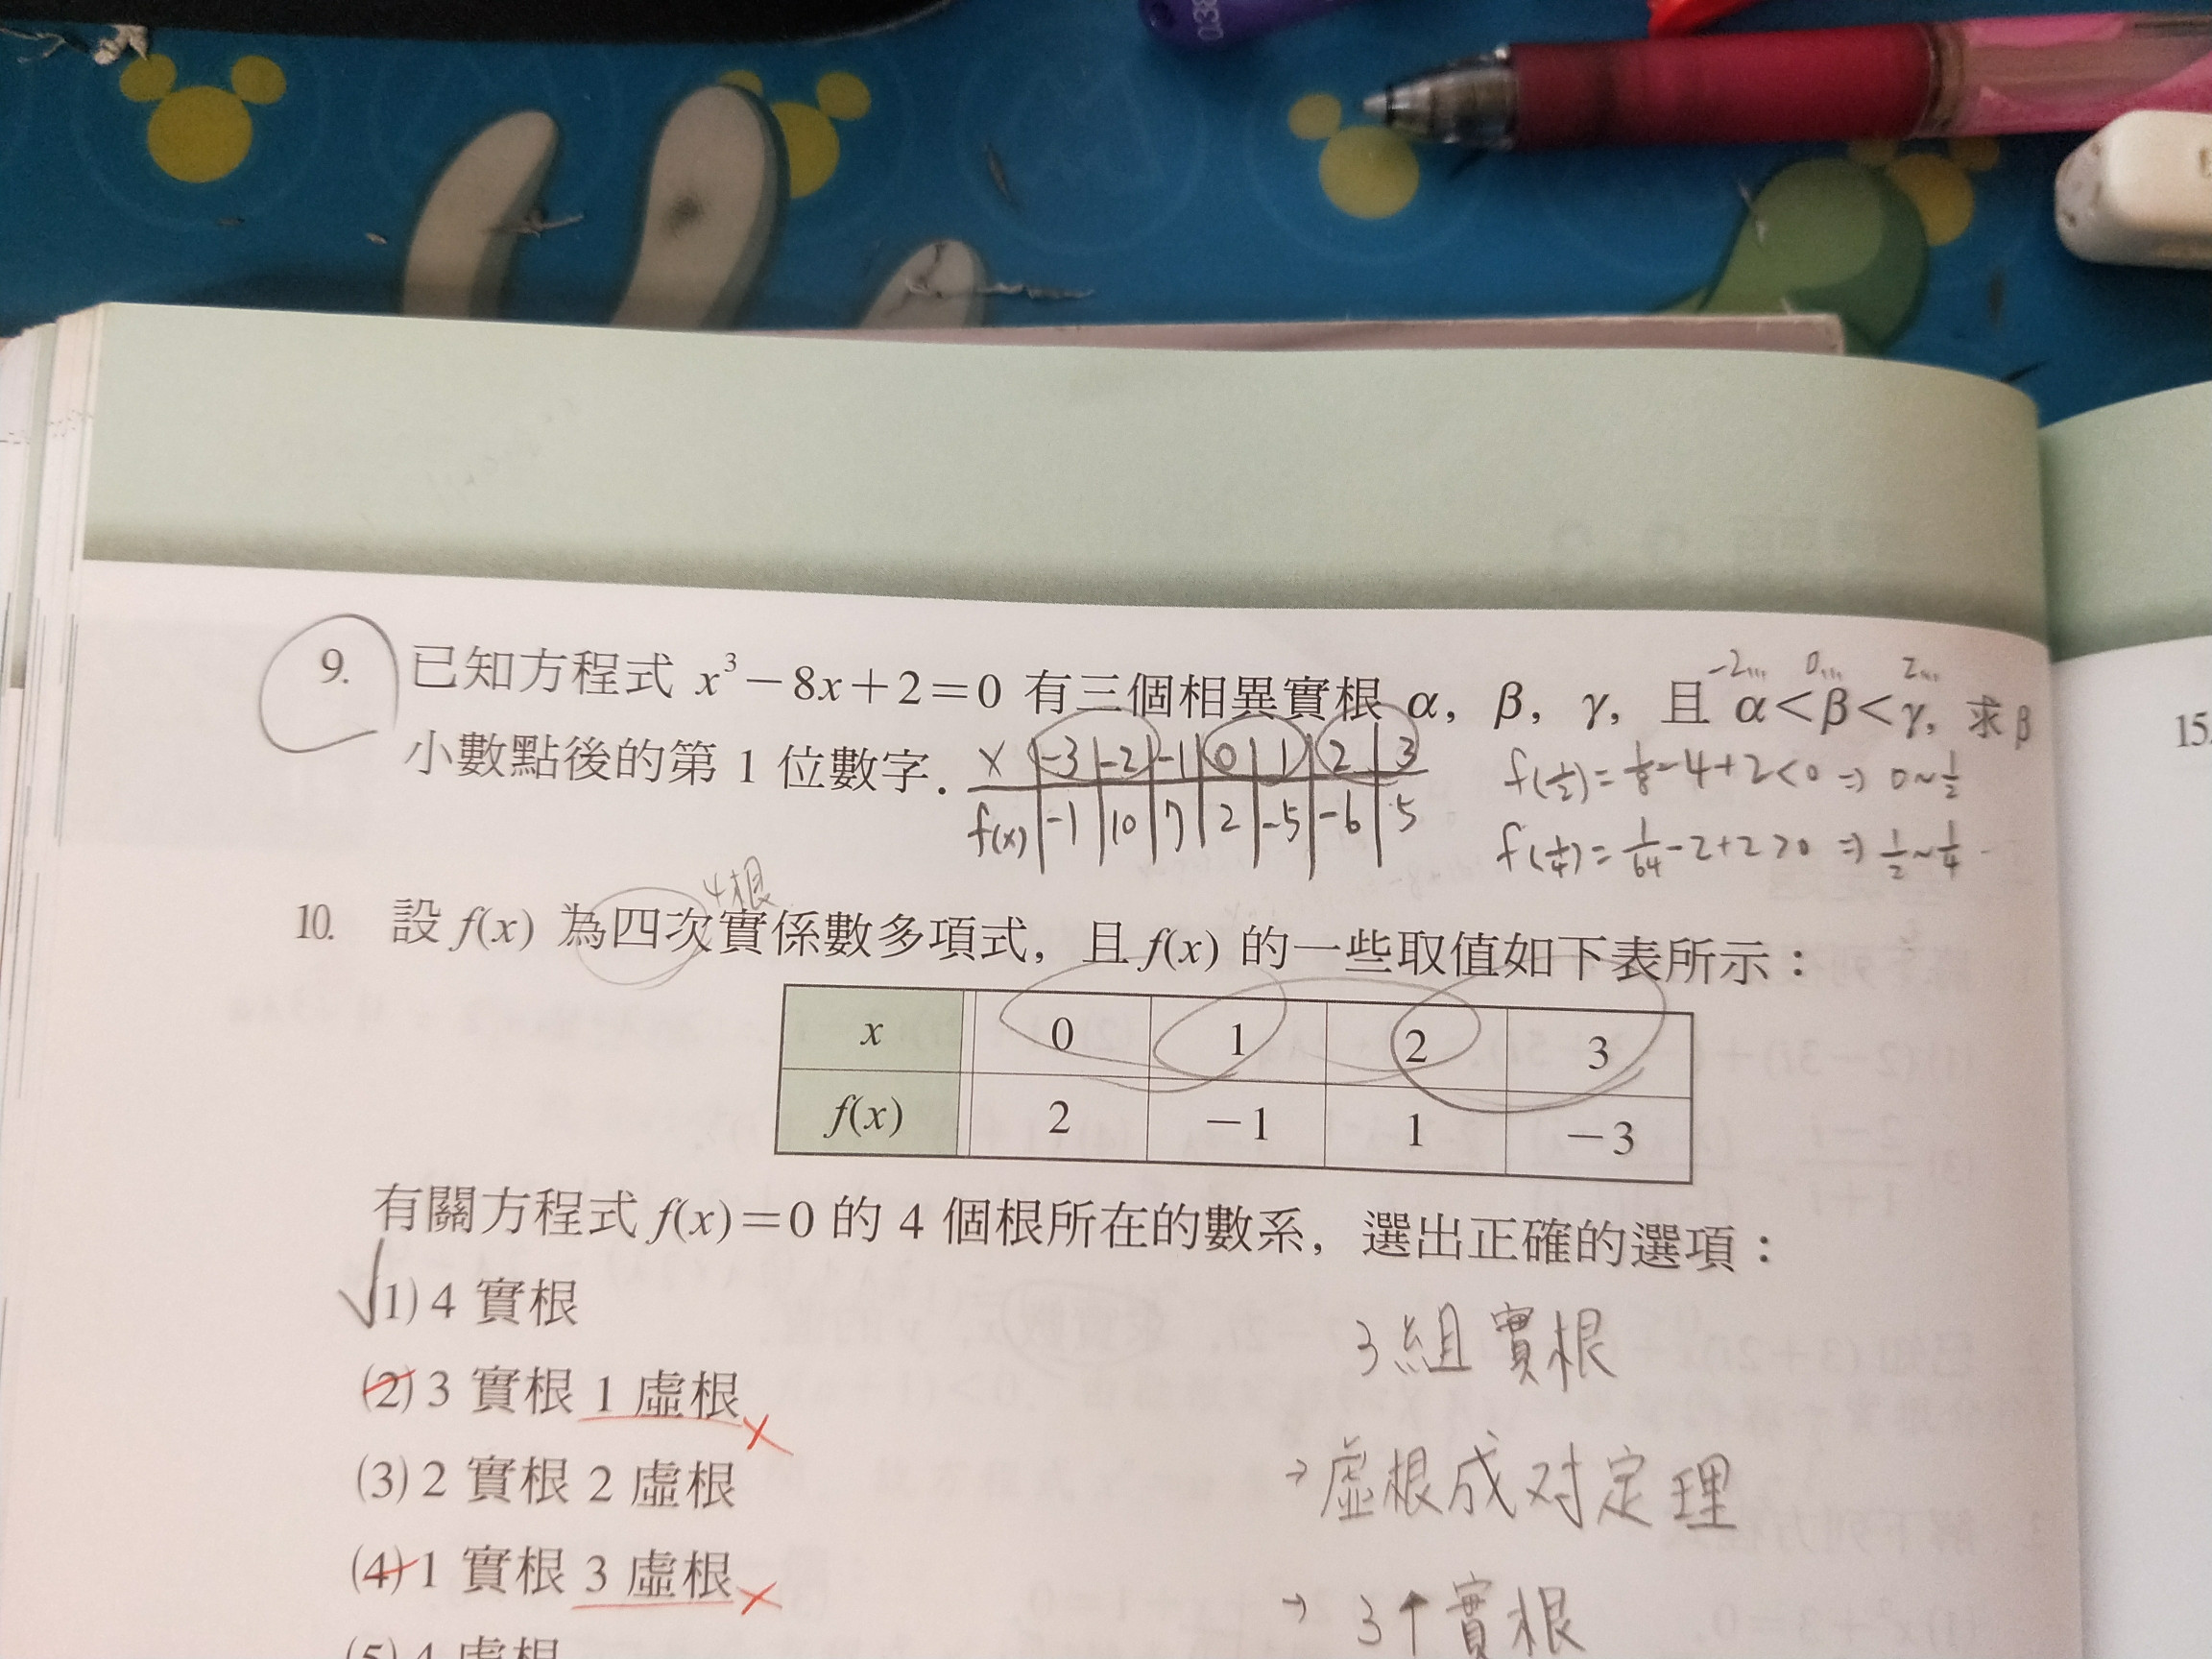 038
9. 已知方程式 x³－8x＋2＝0 有三個相異實根 α，β，γ，且 α＜β＜γ，求 β
-2... 0... 2...
小數點後的第 1 位數字．
x | -3 | -2 | -1 | 0 | 1 | 2 | 3
f(x) | -1 | 10 | 7 | 2 | -5 | -6 | 5
f(1/2) = 1/8 - 4 + 2 < 0 ⇒ 0 ~ 1/2
f(1/4) = 1/64 - 2 + 2 > 0 ⇒ 1/2 ~ 1/4
15.
4根
10. 設 f(x) 為四次實係數多項式，且 f(x) 的一些取值如下表所示：
x 0 1 2 3
f(x) 2 －1 1 －3
有關方程式 f(x)＝0 的 4 個根所在的數系，選出正確的選項：
√(1) 4 實根
(2) 3 實根 1 虛根 ×
(3) 2 實根 2 虛根
(4) 1 實根 3 虛根 ×
(5) 4 虛根
3組實根
→虛根成对定理
→ 3↑實根